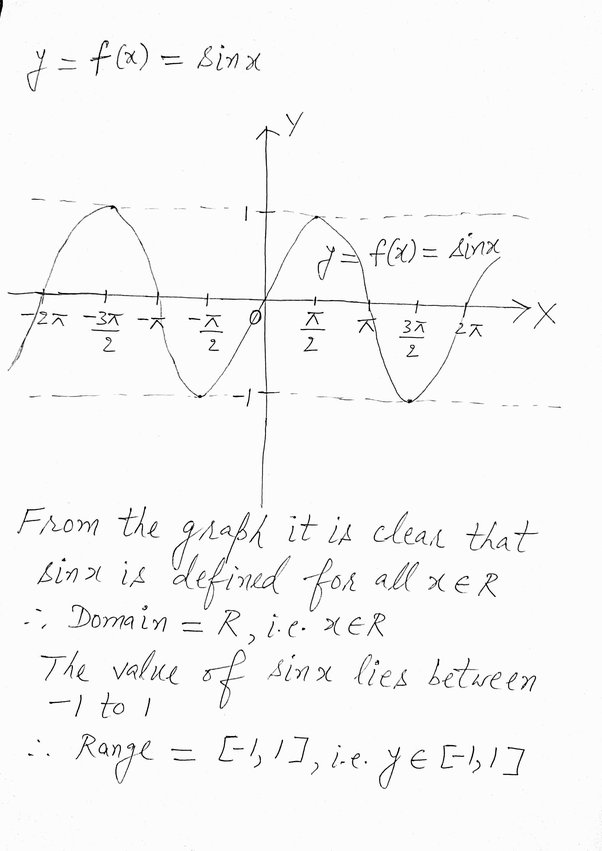 y = f(x) = sinx
Y
1
y = f(x) = sinx
-2π -3π/2 -π -π/2 0 π/2 π 3π/2 2π X
-1
From the graph it is clear that
sinx is defined for all x ∈ R
∴ Domain = R, i.e. x ∈ R
The value of sinx lies between
-1 to 1
∴ Range = [-1, 1], i.e. y ∈ [-1, 1]